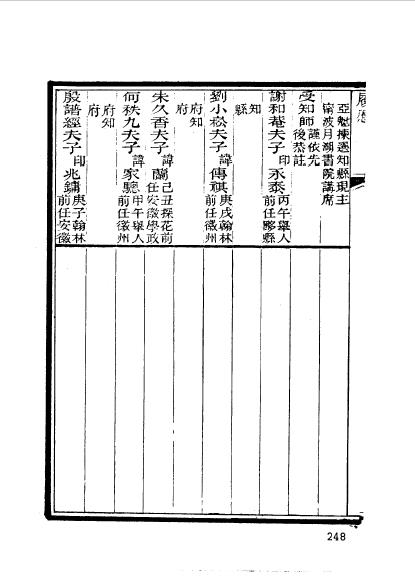 履歷
亞魁揀選知縣現主
甯波月湖書院講席
受知師謹依先
後恭註
謝和菴夫子印永泰丙午舉人
前任黟縣
知
縣
劉小崧夫子諱傳祺庚戌翰林
前任徽州
府知
府
朱久香夫子諱蘭己丑探花前
任安徽學政
何秩九夫子諱家驄甲午舉人
前任徽州
府知
府
殷譜經夫子印兆鏞庚子翰林
前任安徽
248